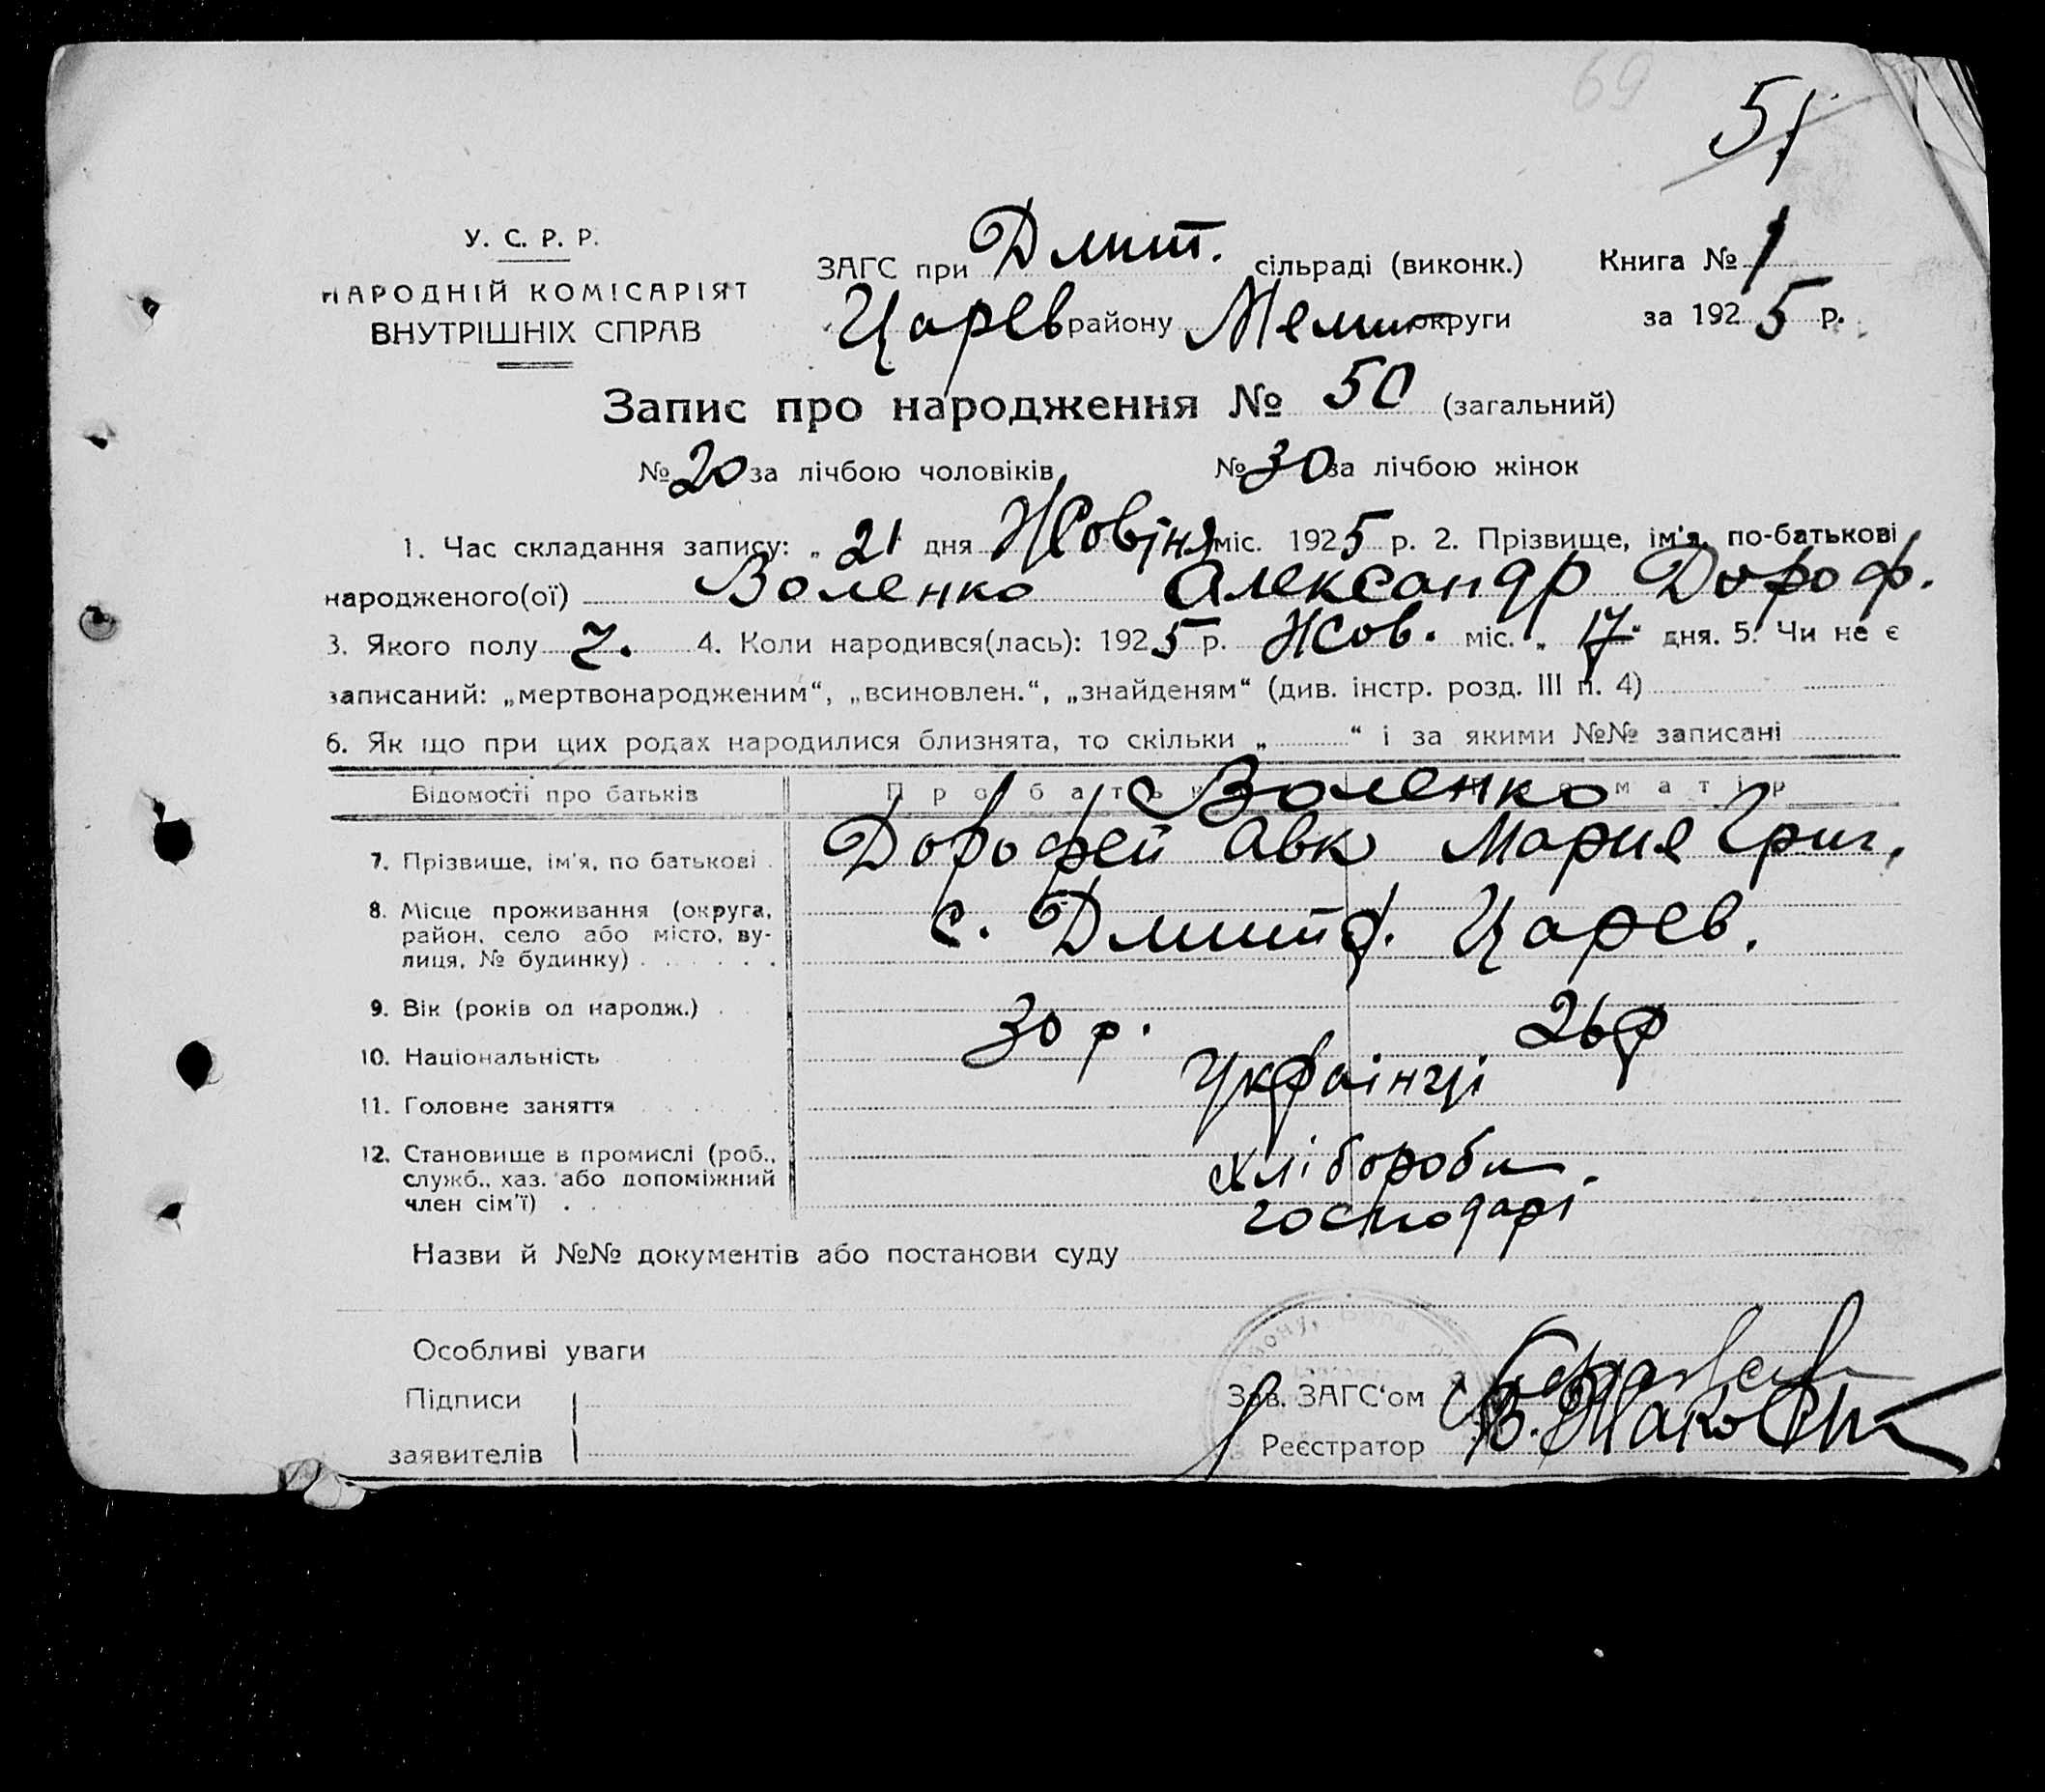 69
51
У. С. Р. Р.
НАРОДНІЙ КОМІСАРІЯТ
ВНУТРІШНІХ СПРАВ
ЗАГС при Дмит. сільраді (виконк.) Книга № 1
Царев району Мелит округи за 1925 р.
Запис про народження № 50 (загальний)
№ 20 за лічбою чоловіків № 30 за лічбою жінок
1. Час складання запису: „ 21 дня Жовтня міс. 1925 р. 2. Прізвище, ім'я, по-батькові
народженого(ої) Воленко Александр Дороф.
3. Якого полу ч. 4. Коли народився(лась): 1925 р. Жов. міс. „ 17 “ дня. 5. Чи не є
записаний: „мертвонародженим“, „всиновлен.“, „знайденям“ (див. інстр. розд. III п. 4)
6. Як що при цих родах народилися близнята, то скільки „ “ і за якими №№ записані
Відомості про батьків Про батька Воленко матір
7. Прізвище, ім'я, по батькові . Дорофей Авк Мария Григ.
8. Місце проживання (округа,
район, село або місто, ву-
лиця, № будинку) . . . . . . с. Дмитр. Царев.
9. Вік (років од народж.) . . 30 р. 26 р
10. Національність Українці
11. Головне заняття хлібороби
12. Становище в промислі (роб.,
служб., хаз. або допоміжний
член сім'ї) . господарі
Назви й №№ документів або постанови суду
Особливі уваги
Підписи
заявителів
Зав. ЗАГС'ом
Реєстратор